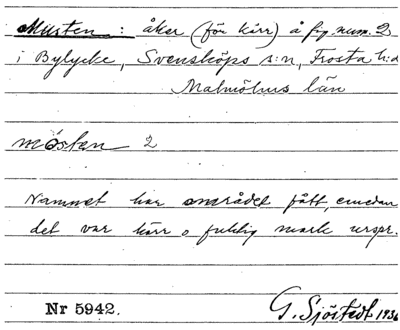 Musten : åker (för kärr) å fig. num. 2
i Bylycke, Svensköps s:n, Frosta h:d
Malmöhus län
mòsten 2
Namnet har området fått, emedan
det var kärr o. fuktig mark urspr.
Nr 5942.
G. Sjöstedt 1936